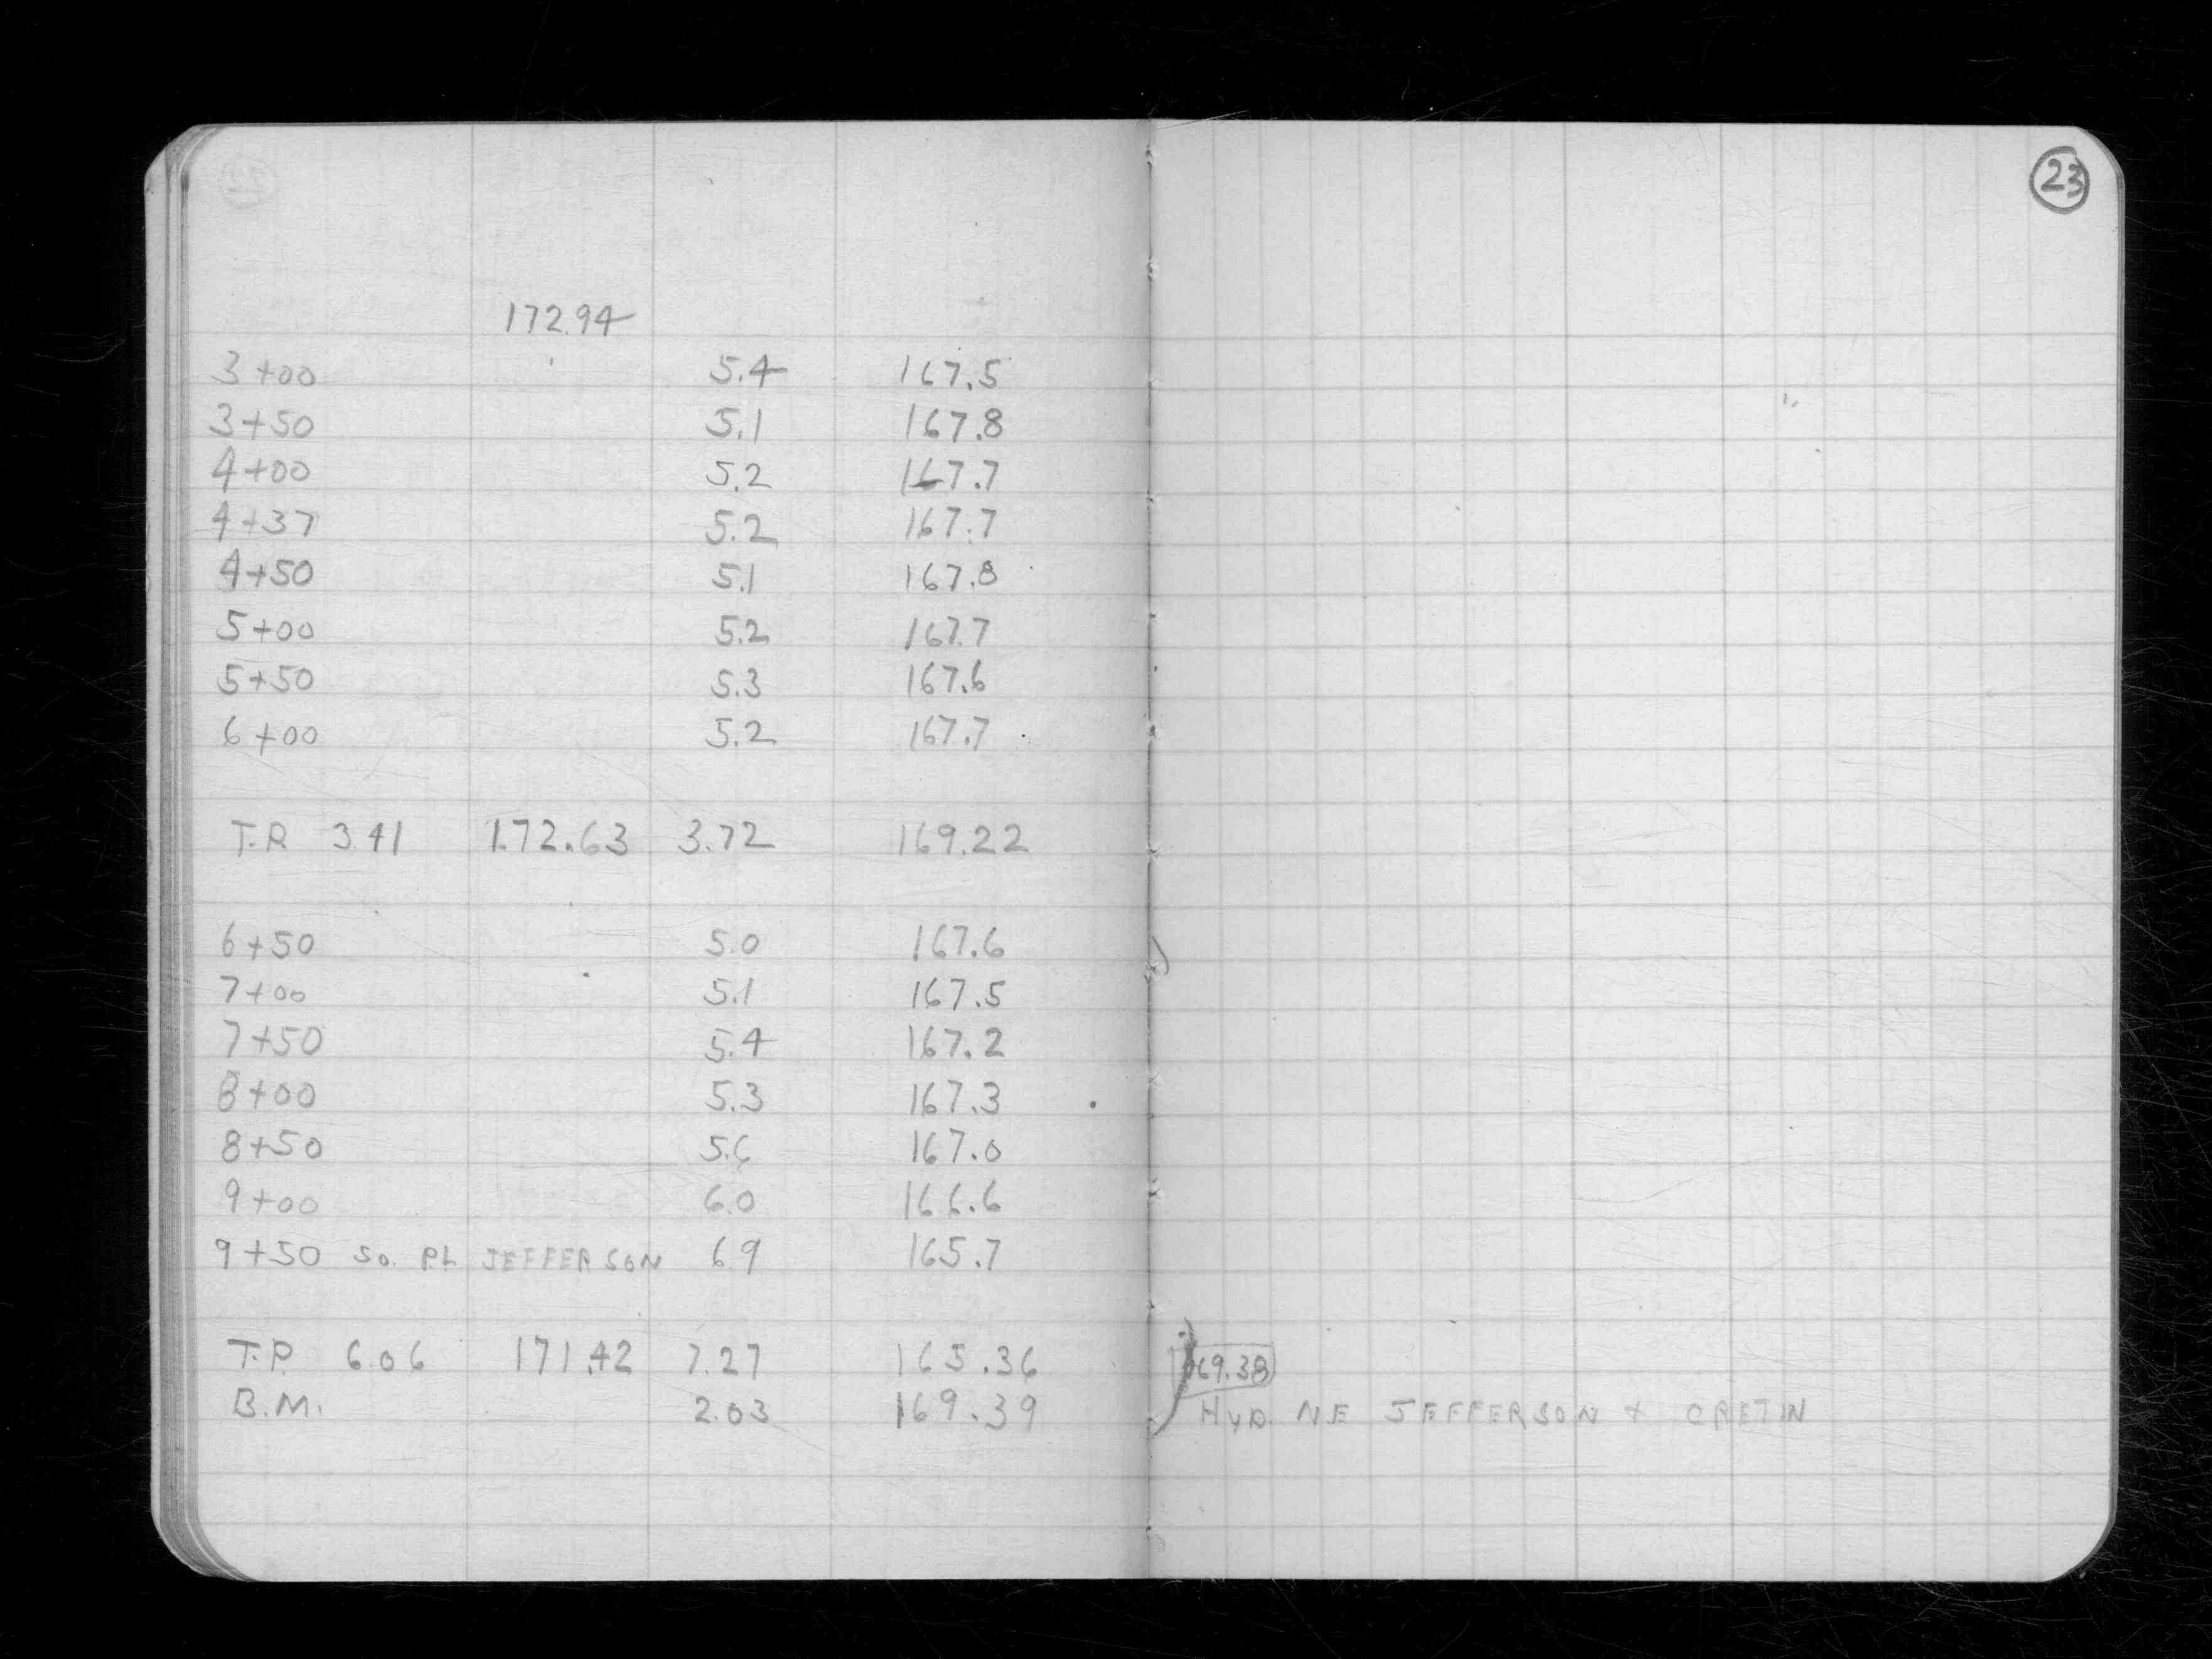 23
172.94
3+00 5.4 167.5
3+50 5.1 167.8
4+00 5.2 167.7
4+37 5.2 167.7
4+50 5.1 167.8
5+00 5.2 167.7
5+50 5.3 167.6
6+00 5.2 167.7
T.P. 3.41 172.63 3.72 169.22
6+50 5.0 167.6
7+00 5.1 167.5
7+50 5.4 167.2
8+00 5.3 167.3
8+50 5.6 167.0
9+00 6.0 166.6
9+50 SO. PL JEFFERSON 6.9 165.7
T.P. 6.06 171.42 7.27 165.36
169.38
B.M. 2.03 169.39 HYD. NE JEFFERSON + CRETIN